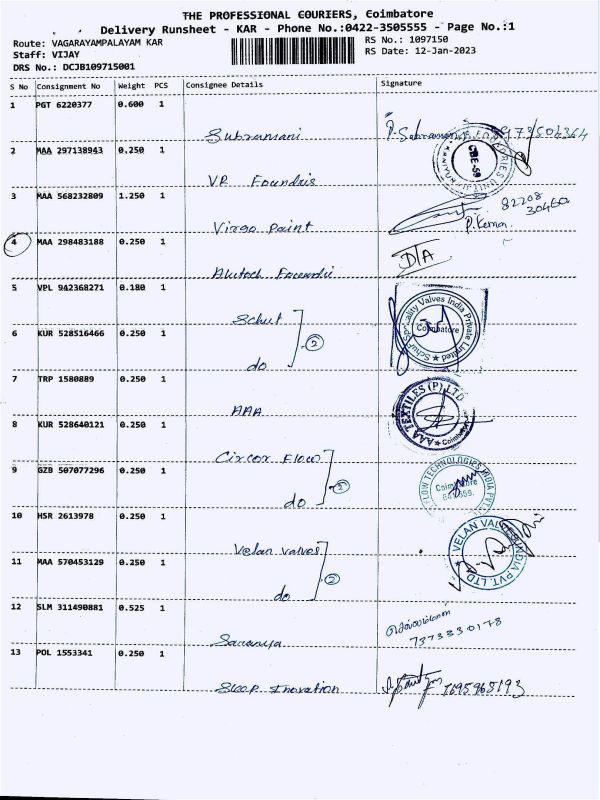 THE PROFESSIONAL COURIERS, Coimbatore
Delivery Runsheet - KAR - Phone No.:0422-3505555 - Page No.:1
Route: VAGARAYAMPALAYAM KAR
RS No.: 1097150
Staff: VIJAY
RS Date: 12-Jan-2023
DRS No.: DCJB109715001
S No Consignment No Weight PCS Consignee Details Signature
1 PGT 6220377 0.600 1
Subramani
2 MAA 297138943 0.250 1
CBE-59
VR Foundris
3 MAA 568232809 1.250 1
82208
30460
Virgo Paint
P.Kemar
4 MAA 298483188 0.250 1
D/A
5 VPL 942368271 0.180 1
Schuf
Schuf Speciality Valves India Private Limited
Coimbatore
6 KUR 528516466 0.250 1
2
do
7 TRP 1580889 0.250 1
AAA
AAA TEXTILES (P) LTD
Coimbatore
8 KUR 528640121 0.250 1
Circor Flow
9 GZB 507077296 0.250 1
2
FLOW TECHNOLOGIES INDIA PVT.
Coimbatore
do
10 HSR 2613978 0.250 1
Velan valves
VELAN VALVES INDIA PVT. LTD
11 MAA 570453129 0.250 1
2
do
12 SLM 311490881 0.525 1
7373330178
Saranya
13 POL 1553341 0.250 1
Sloop Inovation
7695965193